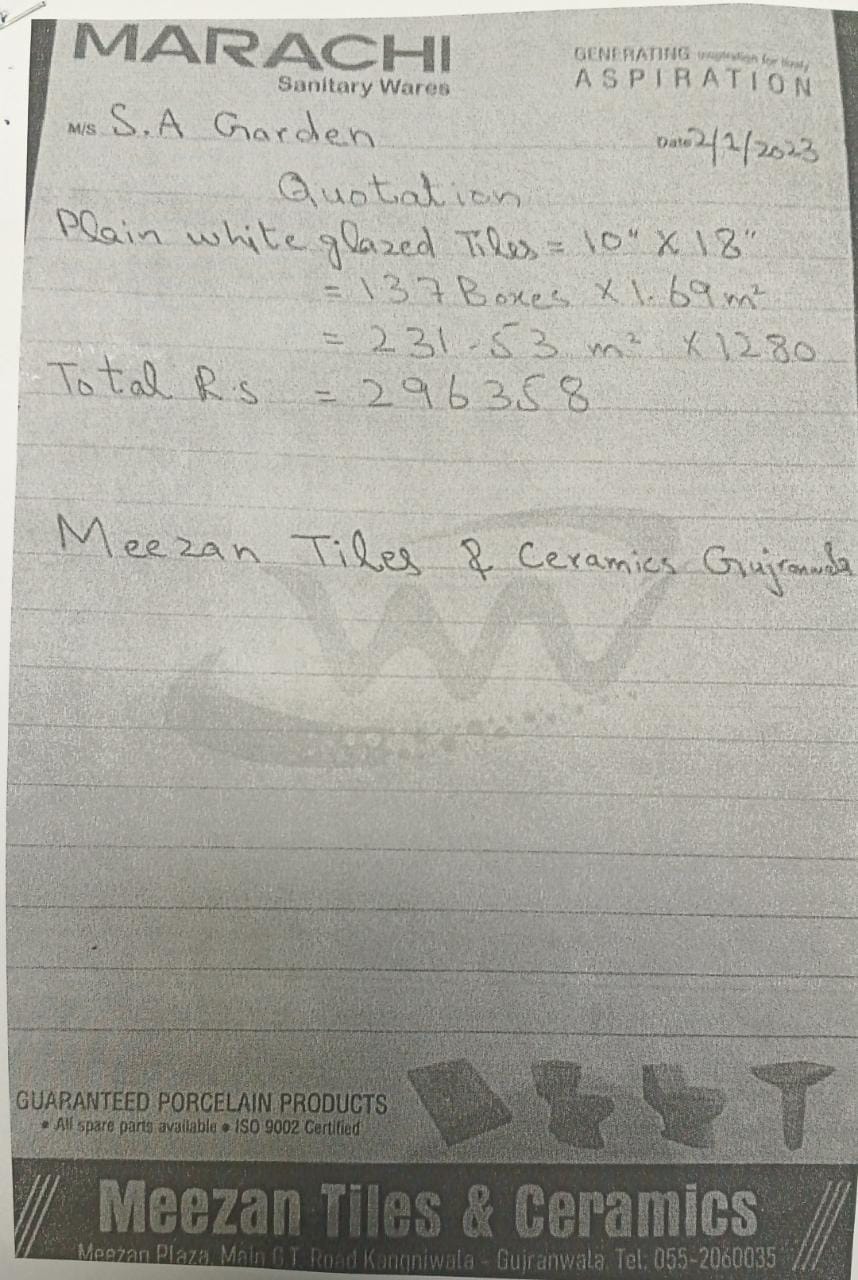 MARACHI
Sanitary Wares
GENERATING inspiration for
ASPIRATION
M/S S.A Garden
Date 2/2/2023
Quotation
Plain white glazed Tiles = 10" X 18"
= 137 Boxes X 1.69 m²
= 231.53 m² X 1280
Total R.s = 296358
Meezan Tiles & Ceramics Gujranwala
GUARANTEED PORCELAIN PRODUCTS
• All spare parts available • ISO 9002 Certified
Meezan Tiles & Ceramics
Meezan Plaza, Main G.T. Road Kangniwala - Gujranwala. Tel: 055-2060035